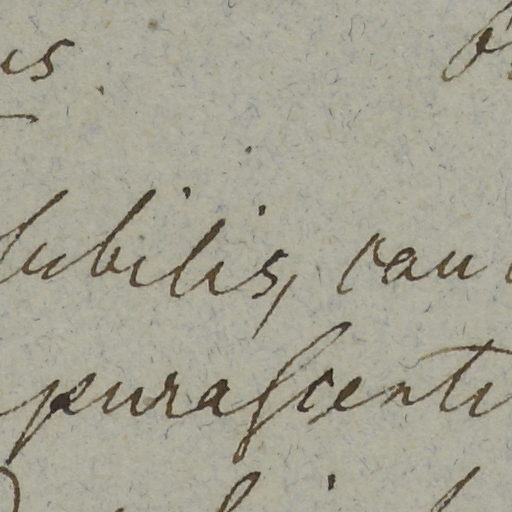 us
lubilis, cau
purascenti